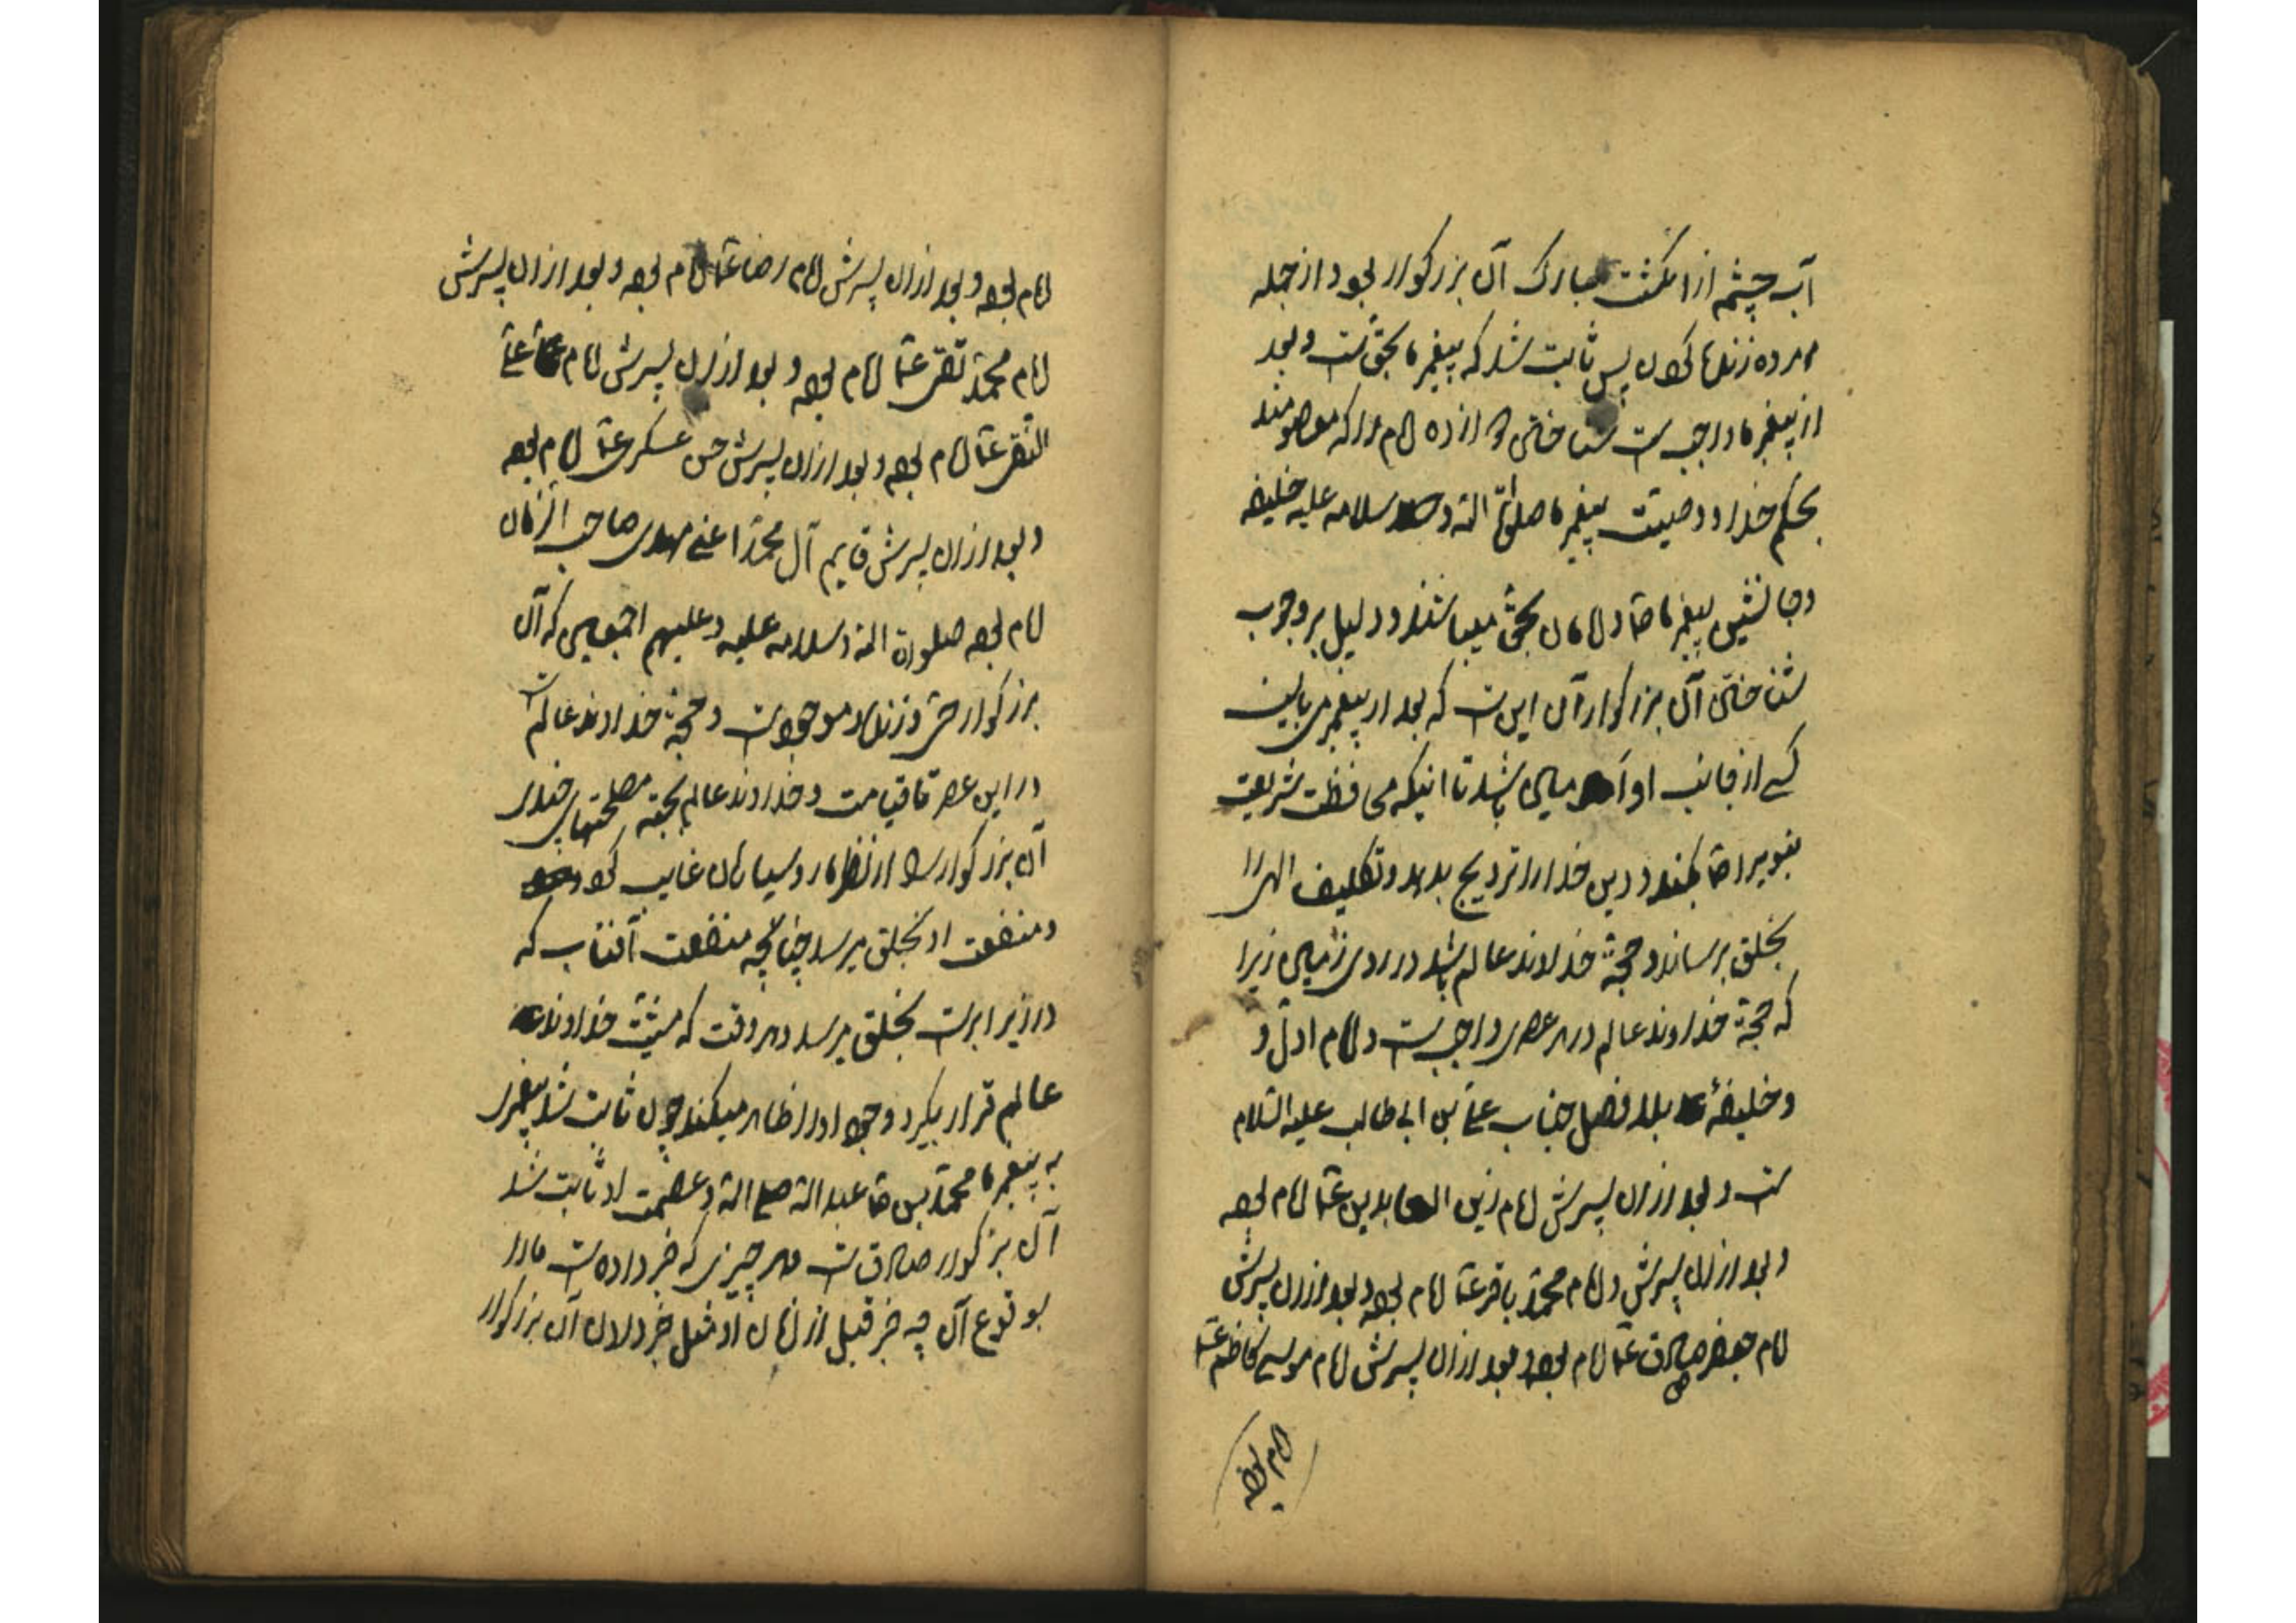 آب چشمه از انگشت مبارک آن بزرکوار بود از جمله
مرده زنده کردن پس ثابت شد که پیغمبر ما بحق است و بعد
از پیغمبر ما واجب است شناختن دوازده امام را که معصومند
بحکم خدا و وصیت پیغمبر ما صلوات الله و سلامه علیه خلیفه
و جانشین پیغمبر ما ص و امامان بحق میباشند و دلیل بر وجوب
شناختن آن بزرکواران این است که بعد از پیغمبر می بایست
کسی از جانب او امین باشد تا اینکه محافظت شریعت
پیغمبر را بکند و دین خدا را ترویج بدهد و تکلیف الهی را
بخلق برساند و حجة خداوند عالم باشد در روی زمین زیرا
که حجة خداوند عالم در هر عصری واجب است و امام اول و
و خلیفهٔ بلا فصل جناب علی بن ابی طالب علیه السلام
است و بعد از آن پسرش امام زین العابدین ع امام بود
و بعد از آن پسرش امام محمد باقر ع امام بود و بعد از آن پسرش
امام جعفر صادق ع امام بود و بعد از آن پسرش امام موسی کاظم ع
امام بود
امام بود و بعد از آن پسرش امام رضا ع امام بود و بعد از آن پسرش
امام محمد تقی ع امام بود و بعد از آن پسرش امام علی
النقی ع امام بود و بعد از آن پسرش حسن عسکری ع امام بود
و بعد از آن پسرش قایم آل محمد اعنی مهدی صاحب الزمان
امام بود صلوة الله و سلامه علیه و علیهم اجمعین که آن
بزرکوار حی و زنده و موجود است و حجة خداوند عالم است
در این عصر تا قیامت و خداوند عالم بجهة مصلحتهای چندی
آن بزرکوار را از نظر ما روسیاهان غایب کرد
و منفعت او بخلق میرسد چنانچه منفعت آفتاب که
در زیر ابر است بخلق میرسد و هر وقت که مشیت خداوند
عالم قرار بگیرد وجود او را ظاهر میکند چون ثابت شد پیغمبری
به پیغمبر ما محمد بن عبدالله صلی الله و عصمت او ثابت شد
آن بزرکوار صادق است و هر چیزی که خبر داده است ما را
بوقوع آن چه خبر قبل از زمان او مثل خبر دادن آن بزرکوار